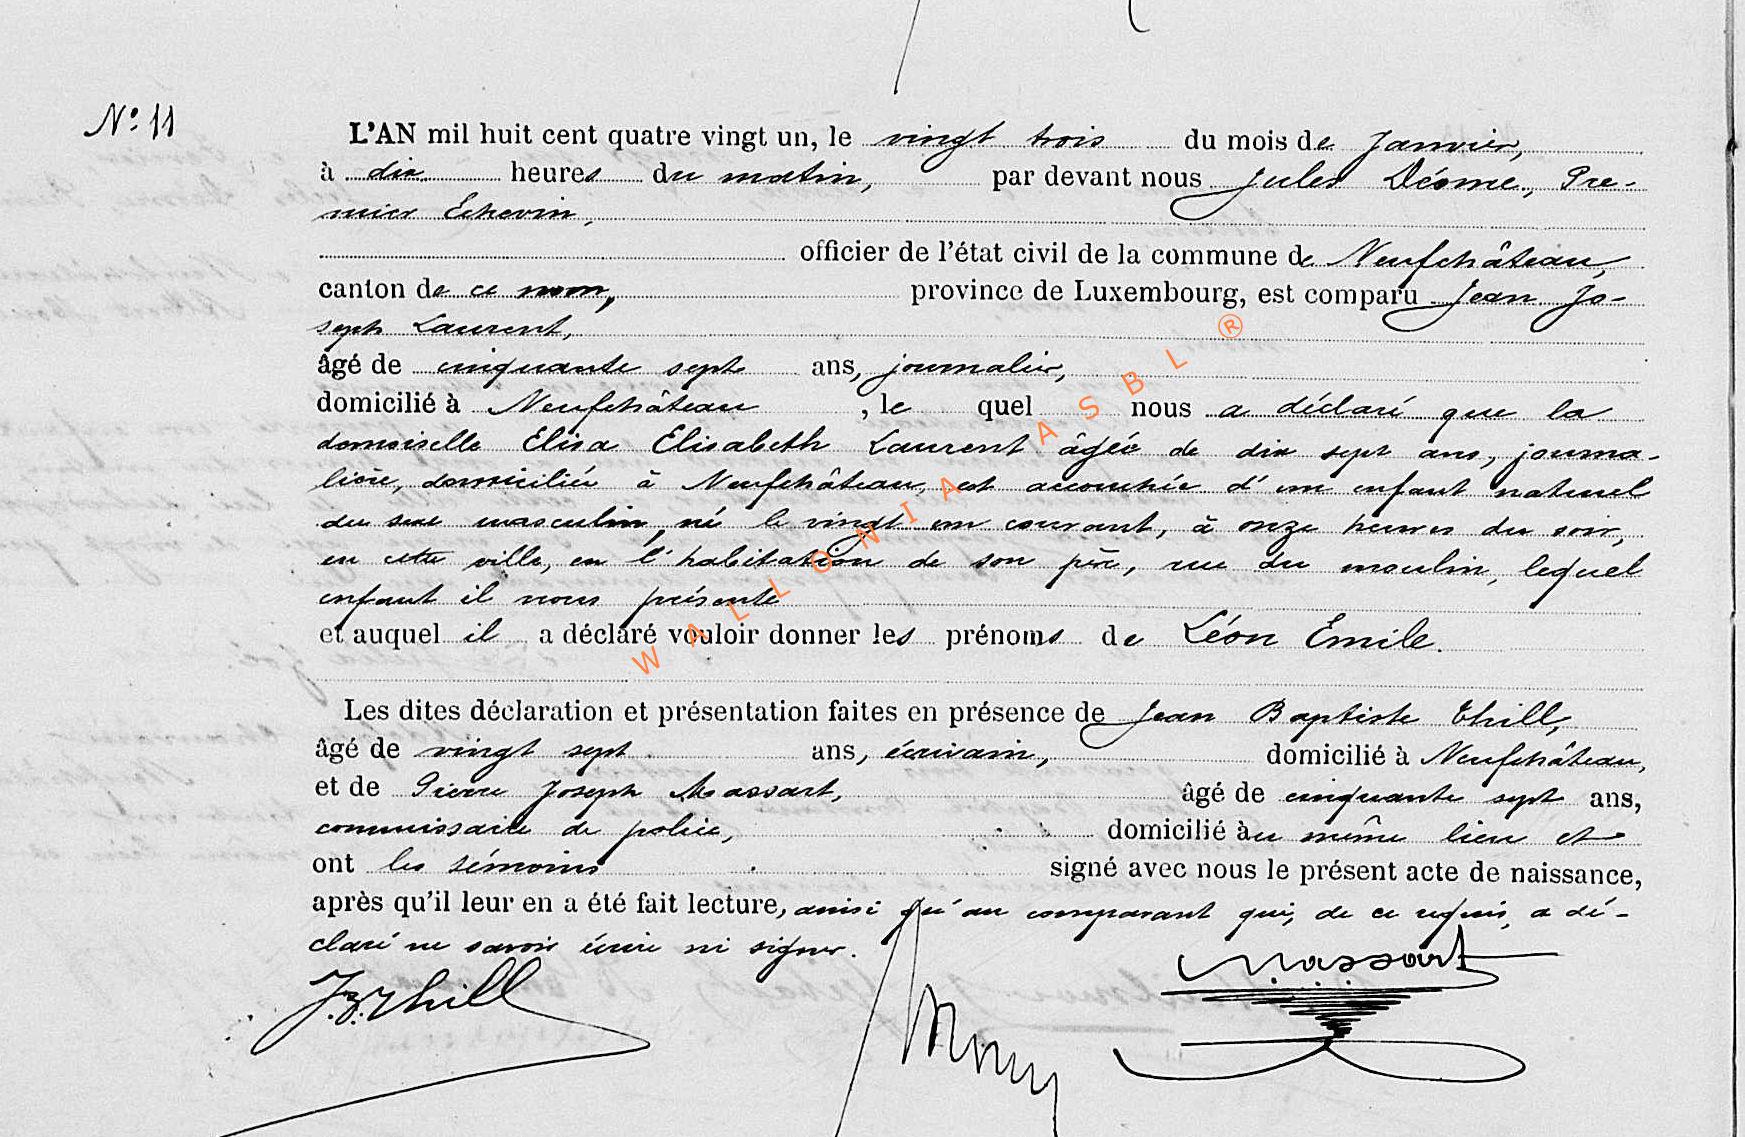 N° 11
L'AN mil huit cent quatre vingt un, le vingt trois du mois de Janvier,
à dix heures du matin, par devant nous Jules Déome, Pre-
mier Echevin,
officier de l'état civil de la commune de Neufchâteau,
canton de ce nom, province de Luxembourg, est comparu Jean Jo-
seph Laurent,
âgé de cinquante sept ans, journalier,
domicilié à Neufchâteau, le quel nous a déclaré que la
demoiselle Elisa Elisabeth Laurent âgée de dix sept ans, journa-
lière, domiciliée à Neufchâteau, est accouchée d'un enfant naturel
du sexe masculin, né le vingt un courant, à onze heures du soir,
en cette ville, en l'habitation de son père, rue du moulin, lequel
enfant il nous présente
et auquel il a déclaré vouloir donner les prénoms de Léon Emile.
Les dites déclaration et présentation faites en présence de Jean Baptiste Thill,
âgé de vingt sept ans, écrivain, domicilié à Neufchâteau,
et de Pierre Joseph Massart, âgé de cinquante sept ans,
commissaire de police, domicilié au même lieu et
ont les témoins signé avec nous le présent acte de naissance,
après qu'il leur en a été fait lecture, ainsi qu'au comparant qui, de ce requis, a dé-
claré ne savoir écrire ni signer.
J.B. Thill
Massart
WALLONIA ASBL ®